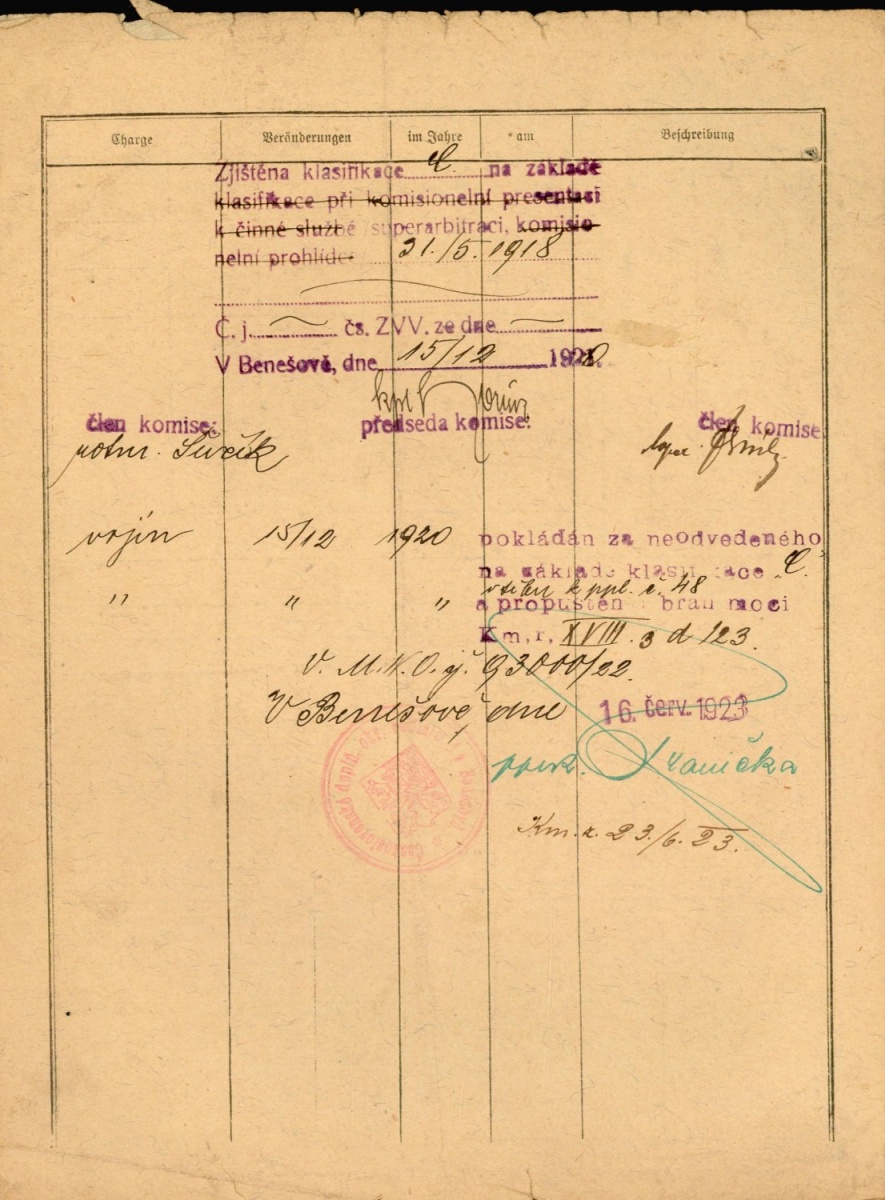 Charge Veränderungen im Jahre am Beschreibung
Zjištěna klasifikace C. na základě
klasifikace při komisionelní presentaci
k činné službě superarbitraci, komisio-
nelní prohlídce 31./5. 1918
Č. j. čs. ZVV. ze dne
V Benešově, dne 15/12 1920.
kpt
člen komise: předseda komise: člen komise:
rotm.
vojín 15/12 1920 pokládán za neodvedeného
na základě klasifikace „C.“
vtělen k ppl. č. 48
" " " a propuštěn z bran. moci
Km. r. XVIII. 3 d 123.
V. M.N.O. č. 93000/22.
V Benešově, dne 16. červ. 1923
Československé dopln. okr. velitelství v Benešově
Km. r. 23./6. 23.